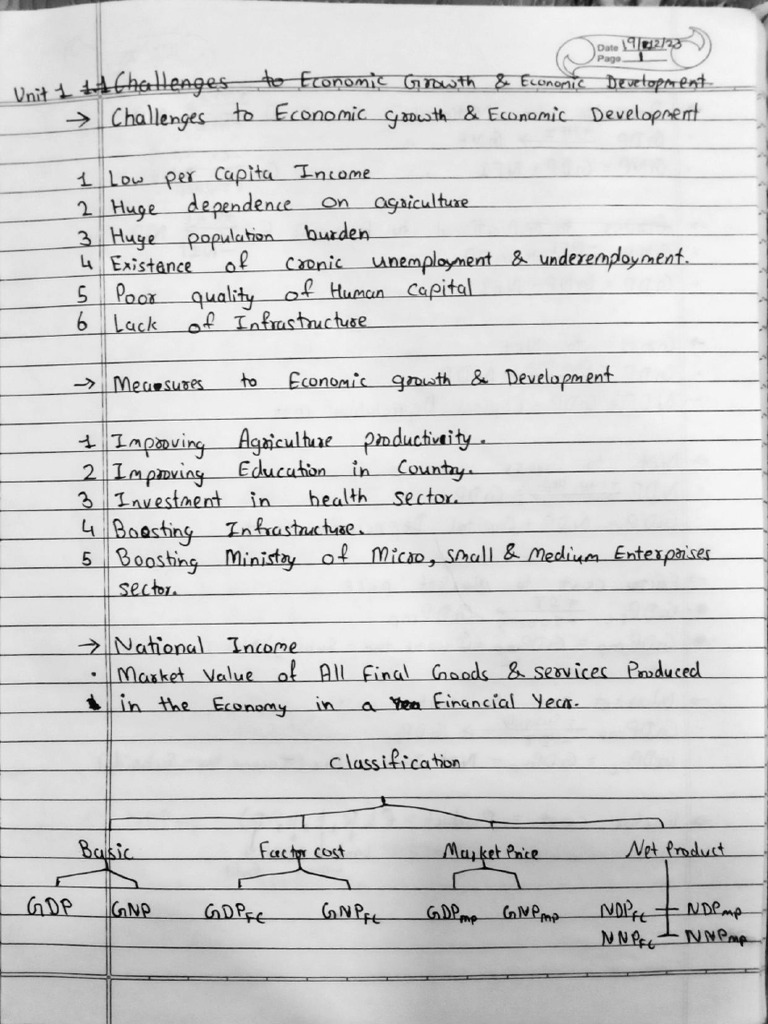 Date 19/12/23
Page 1
Unit 1 1.1 Challenges to Economic Growth & Economic Development
→ Challenges to Economic growth & Economic Development
1 Low per Capita Income
2 Huge dependence on agriculture
3 Huge population burden
4 Existance of cronic unemployment & underemployment.
5 Poor quality of Human Capital
6 Lack of Infrastructure
→ Measures to Economic growth & Development
1 Improving Agriculture productivity.
2 Improving Education in Country.
3 Investment in health sector.
4 Boosting Infrastructure.
5 Boosting Ministry of Micro, small & Medium Enterprises
sector.
→ National Income
• Market Value of All Final Goods & services Produced
in the Economy in a Financial Year.
Classification
Basic Factor cost Market Price Net Product
GDP GNP GDPFC GNPFC GDPmp GNPmp NDPFC NDPmp
NNPFC NNPmp